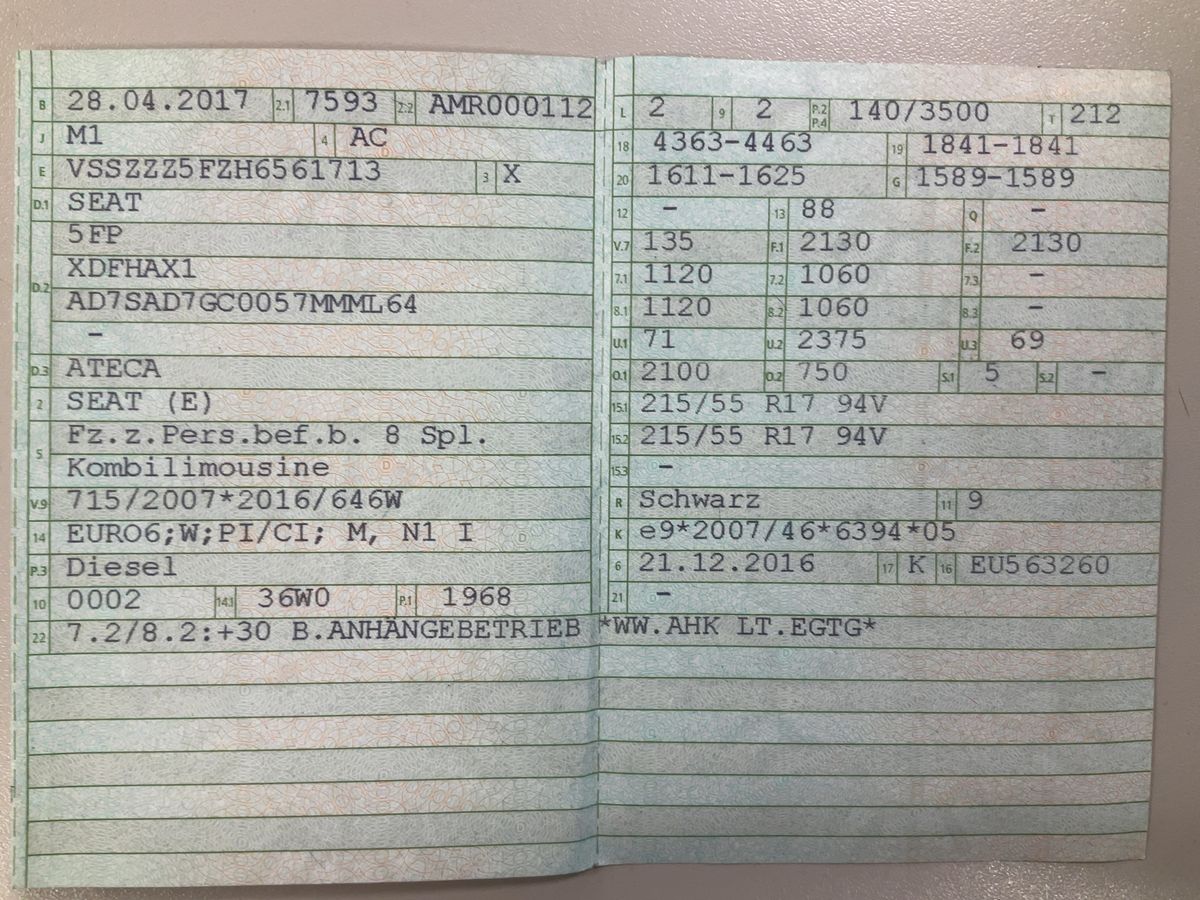 B 28.04.2017 2.1 7593 2.2 AMR000112
J M1 4 AC
E VSSZZZ5FZH6561713 3 X
D.1 SEAT
5FP
D.2 XDFHAX1
AD7SAD7GC0057MMML64
–
D.3 ATECA
2 SEAT (E)
5 Fz.z.Pers.bef.b. 8 Spl.
Kombilimousine
V.9 715/2007*2016/646W
14 EURO6;W;PI/CI; M, N1 I
P.3 Diesel
10 0002 14.1 36W0 P.1 1968
22 7.2/8.2:+30 B.ANHÄNGEBETRIEB *WW.AHK LT.EGTG*
L 2 9 2 P.2 P.4 140/3500 T 212
18 4363-4463 19 1841-1841
20 1611-1625 G 1589-1589
12 – 13 88 Q –
V.7 135 F.1 2130 F.2 2130
7.1 1120 7.2 1060 7.3 –
8.1 1120 8.2 1060 8.3 –
U.1 71 U.2 2375 U.3 69
O.1 2100 O.2 750 S.1 5 S.2 –
15.1 215/55 R17 94V
15.2 215/55 R17 94V
15.3 –
R Schwarz 11 9
K e9*2007/46*6394*05
6 21.12.2016 17 K 16 EU563260
21 –